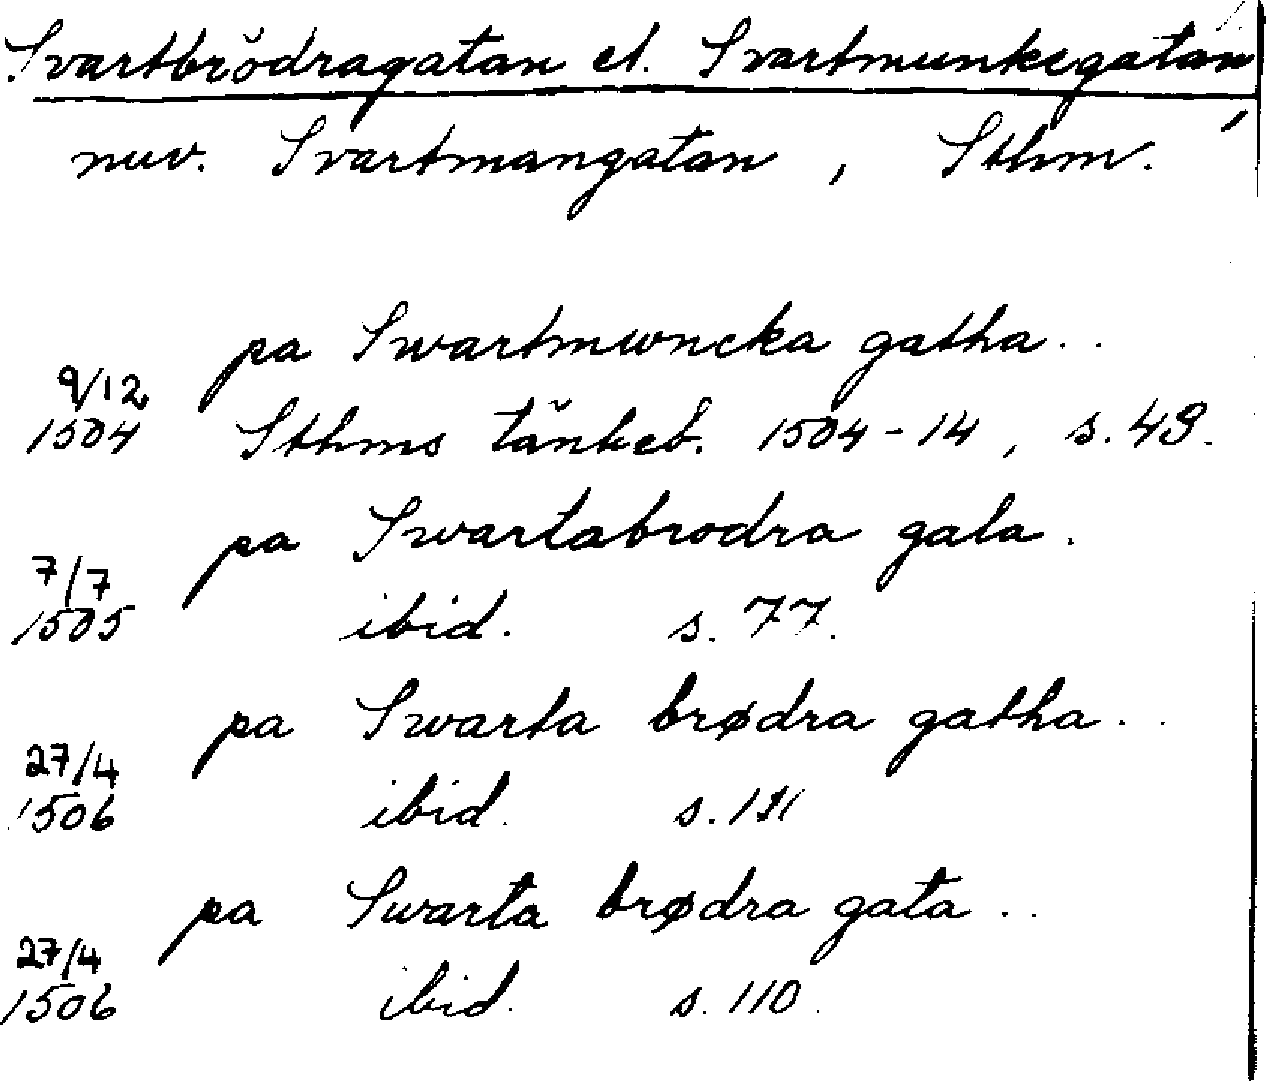 Svartbrödragatan el. Svartmunkegatan,
nuv. Svartmangatan, Sthm.
pa Swartmwncka gatha..
9/12
1504 Sthms tänkeb. 1504-14, s. 49.
pa Swartabrodra gata.
7/7
1505 ibid. s. 77.
pa Swarta brødra gatha..
27/4
1506 ibid.
pa Swarta brødra gata..
27/4
1506 ibid. s. 110.